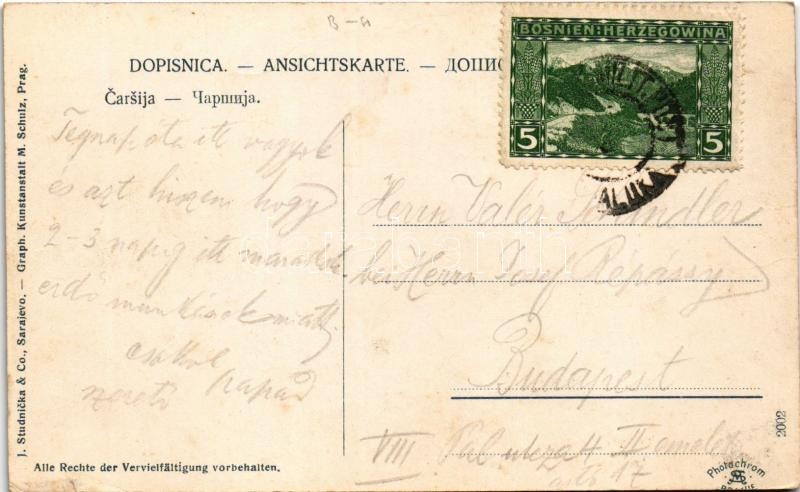 B-H
BOSNIEN-HERZEGOWINA
5 5
MILIT. POST
ALUKA
DOPISNICA. — ANSICHTSKARTE. — ДОПИС
Čaršija — Чаршија.
Tegnap óta itt vagyok
és azt hiszem hogy
2-3 napig itt maradok
erdő munkások miatt
csokol
szerető Papád
Herrn Valér
bei Herrn Josef Répássy
Budapest
VIII Pál utcza 4 II emelet
ajtó 17
J. Studnička & Co., Sarajevo. — Graph. Kunstanstalt M. Schulz, Prag.
Alle Rechte der Vervielfältigung vorbehalten.
2002
Photochrom